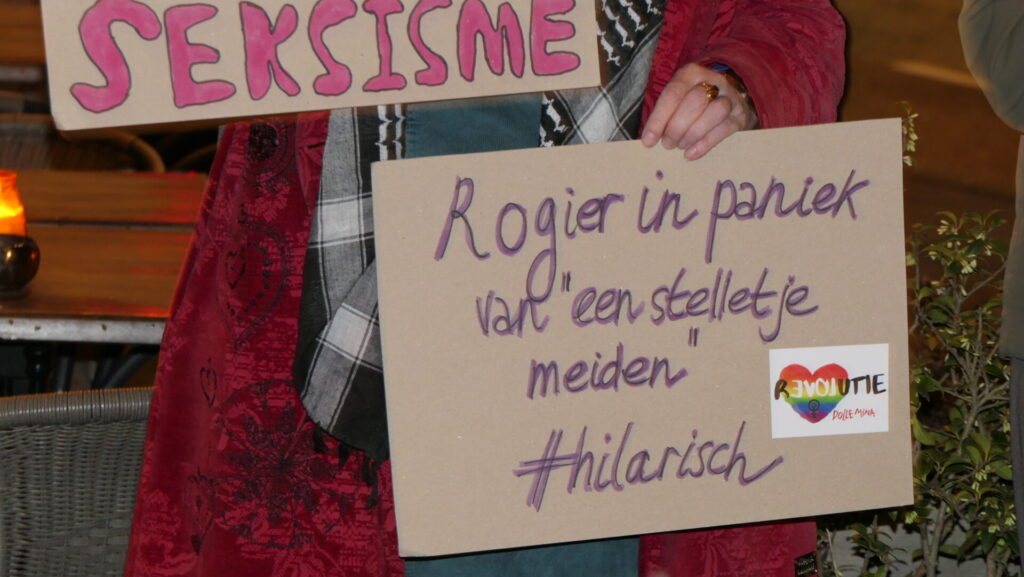 SEKSISME
Rogier in paniek
van "een stelletje
meiden"
#hilarisch
REVOLUTIE
DOLLE MINA